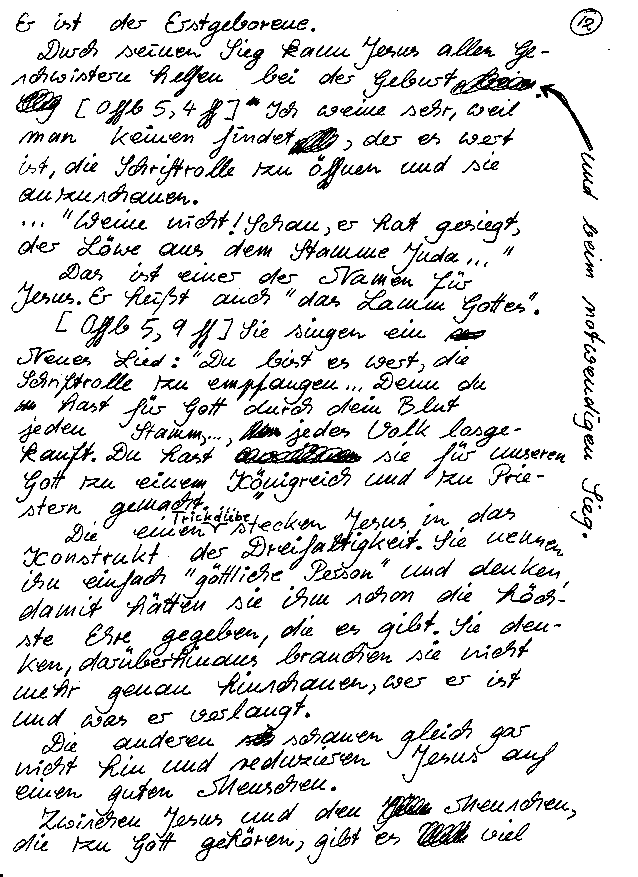 Er ist der Erstgeborene.
12
Durch seinen Sieg kann Jesus allen Ge-
schwistern helfen bei der Geburt
und beim notwendigen Sieg.
[Offb 5,4 ff] "Ich weine sehr, weil
man keinen findet, der es wert
ist, die Schriftrolle zu öffnen und sie
anzuschauen.
... "Weine nicht! Schau, er hat gesiegt,
der Löwe aus dem Stamme Juda..."
Das ist einer der Namen für
Jesus. Er heißt auch "das Lamm Gottes".
[Offb 5,9 ff] Sie singen ein
Neues Lied: "Du bist es wert, die
Schriftrolle zu empfangen... Denn du
hast für Gott durch dein Blut
jeden Stamm,..., jedes Volk losge-
kauft. Du hast sie für unseren
Gott zu einem Königreich und zu Prie-
stern gemacht."
Die einen Trickdiebe stecken Jesus in das
Konstrukt der Dreifaltigkeit. Sie nennen
ihn einfach "göttliche Person" und denken,
damit hätten sie ihm schon die höch-
ste Ehre gegeben, die es gibt. Sie den-
ken, darüberhinaus brauchen sie nicht
mehr genau hinschauen, wer er ist
und was er verlangt.
Die anderen schauen gleich gar
nicht hin und reduzieren Jesus auf
einen guten Menschen.
Zwischen Jesus und den Menschen,
die zu Gott gehören, gibt es viel